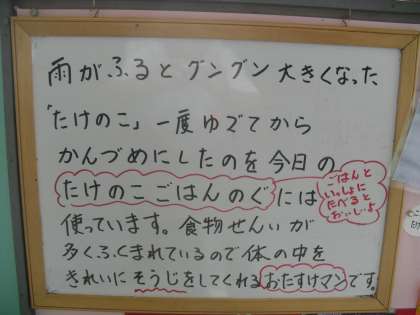 雨がふるとグングン大きくなった
「たけのこ」一度ゆでてから
かんづめにしたのを今日の
たけのこごはんのぐには
ごはんと
いっしょに
たべると
おいしいよ
使っています。食物せんいが
多くふくまれているので体の中を
きれいにそうじをしてくれるおたすけマンです。